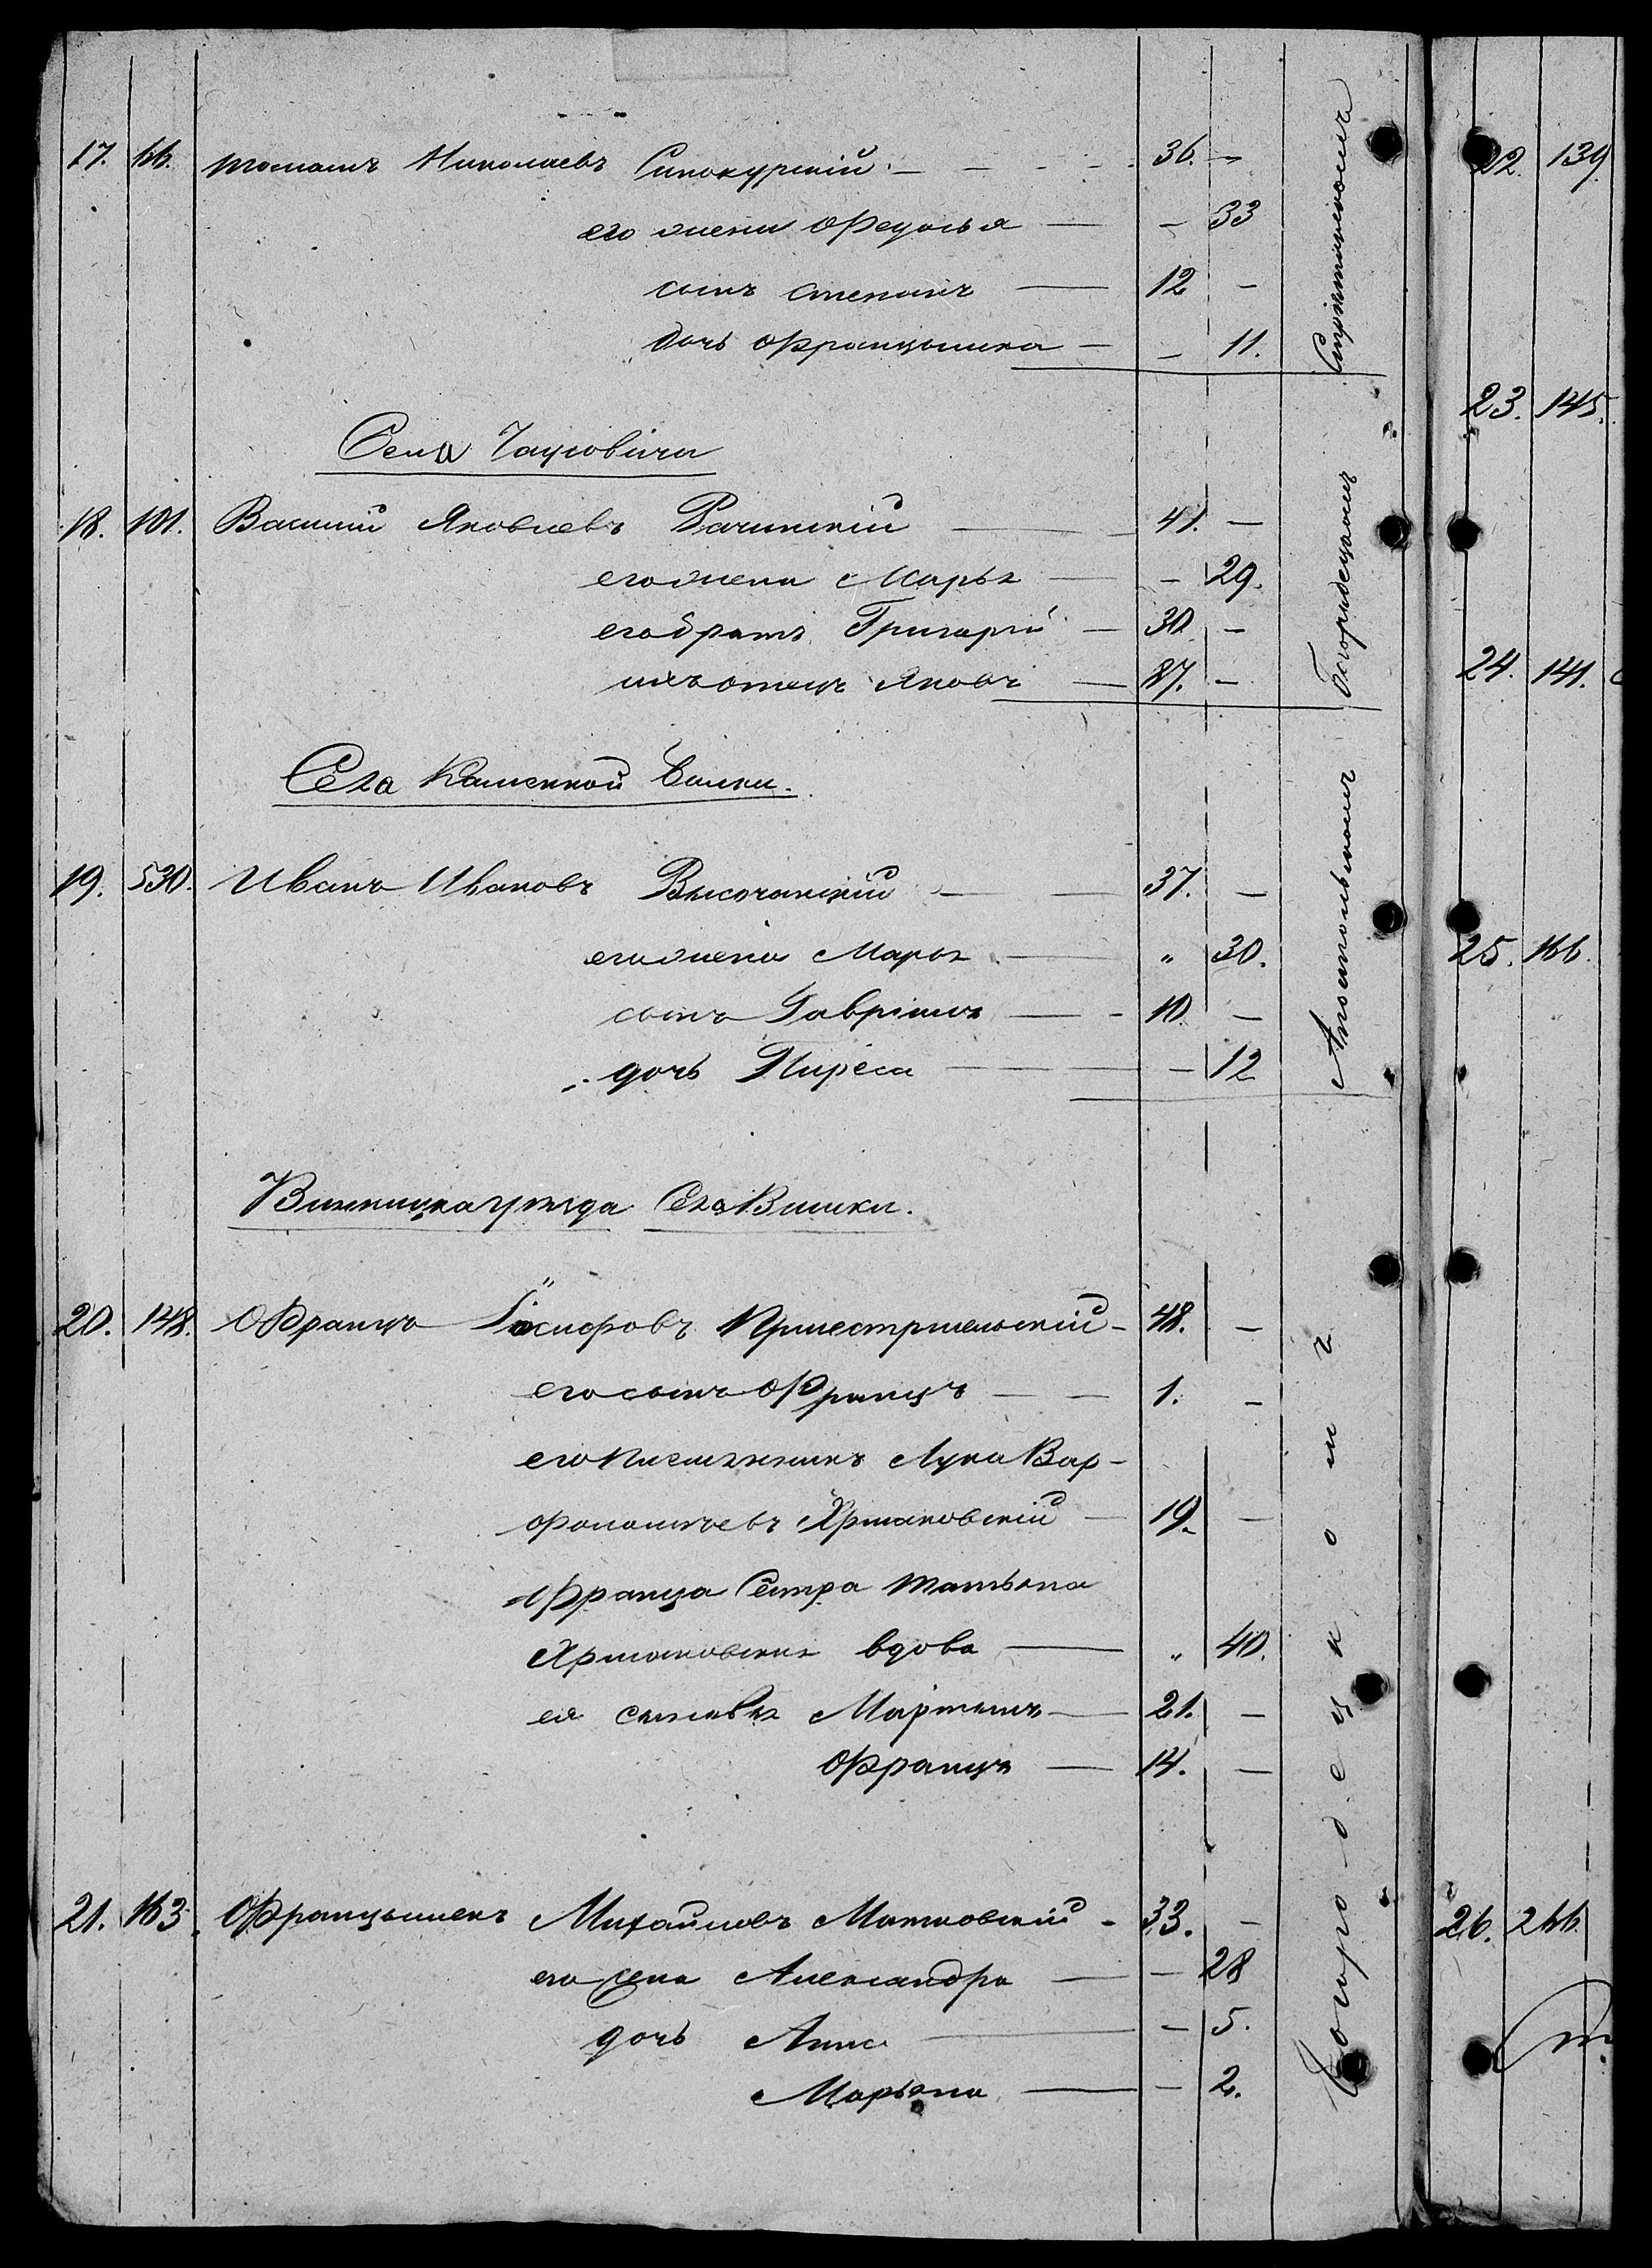 17. 66. Томашъ Николаевъ Синокурскій 36. –
его жена Федосья – 33
сынъ Степанъ 12 –
дочь Францышка – 11.
Села
18. 101. Василій Яковлевъ Рачинскій 41. –
его жена Марья – 29.
его братъ Григорій 30 –
ихъ отецъ Яковъ 87. –
Села Каменной
19. 530. Иванъ Ивановъ Высочанскій 37. –
его жена Марья „ 30.
сынъ Гавріилъ 10 –
дочь Тиреса – 12
Винницкаго уѣзда Села Вишки.
20. 148. Францъ Іосифовъ 48. –
его сынъ Францъ 1. –
его племянникъ Лука Вар-
фоломѣевъ Яржаковскій 19. –
Франца Сестра Татьяна
Яржаковская вдова „ 40.
ея сыновья Мартынъ 21. –
Францъ 14. –
21. 163. Францышекъ Михайловъ Матковскій 33. –
его жена Александра – 28
дочь Анна – 5.
Марьяна – 2.
22. 139.
23. 145.
24. 141.
25. 166.
26. 266.